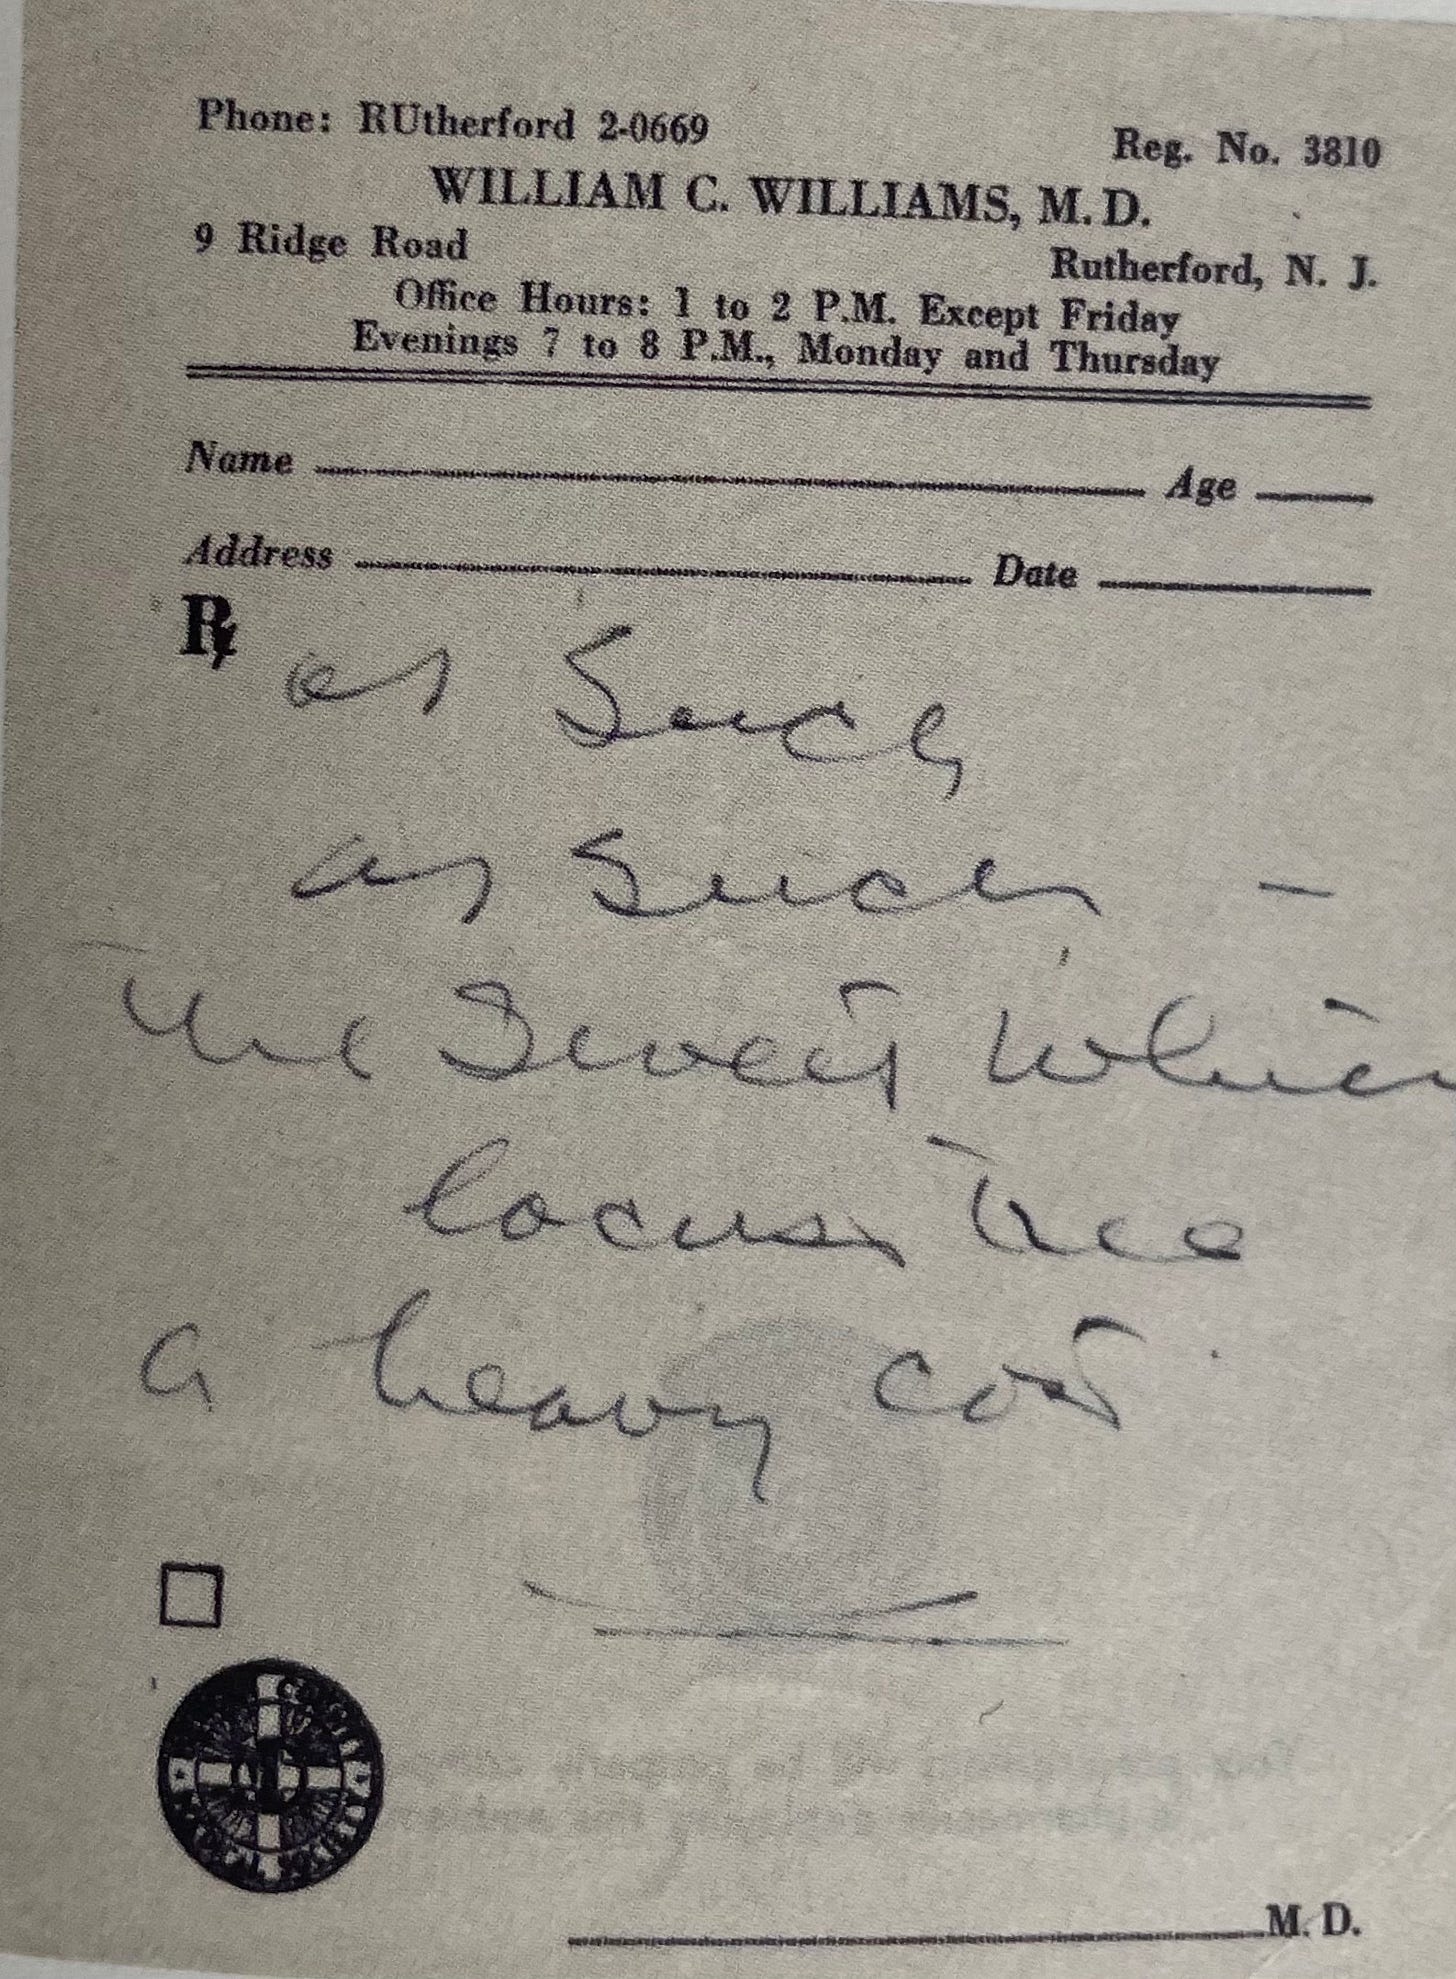 Phone: RUtherford 2-0669 Reg. No. 3810
WILLIAM C. WILLIAMS, M. D.
9 Ridge Road Rutherford, N. J.
Office Hours: 1 to 2 P.M. Except Friday
Evenings 7 to 8 P.M., Monday and Thursday
Name Age
Address Date
℞ as Such
as Such —
The Sweet white
locust tree
a heavy cost
M. D.